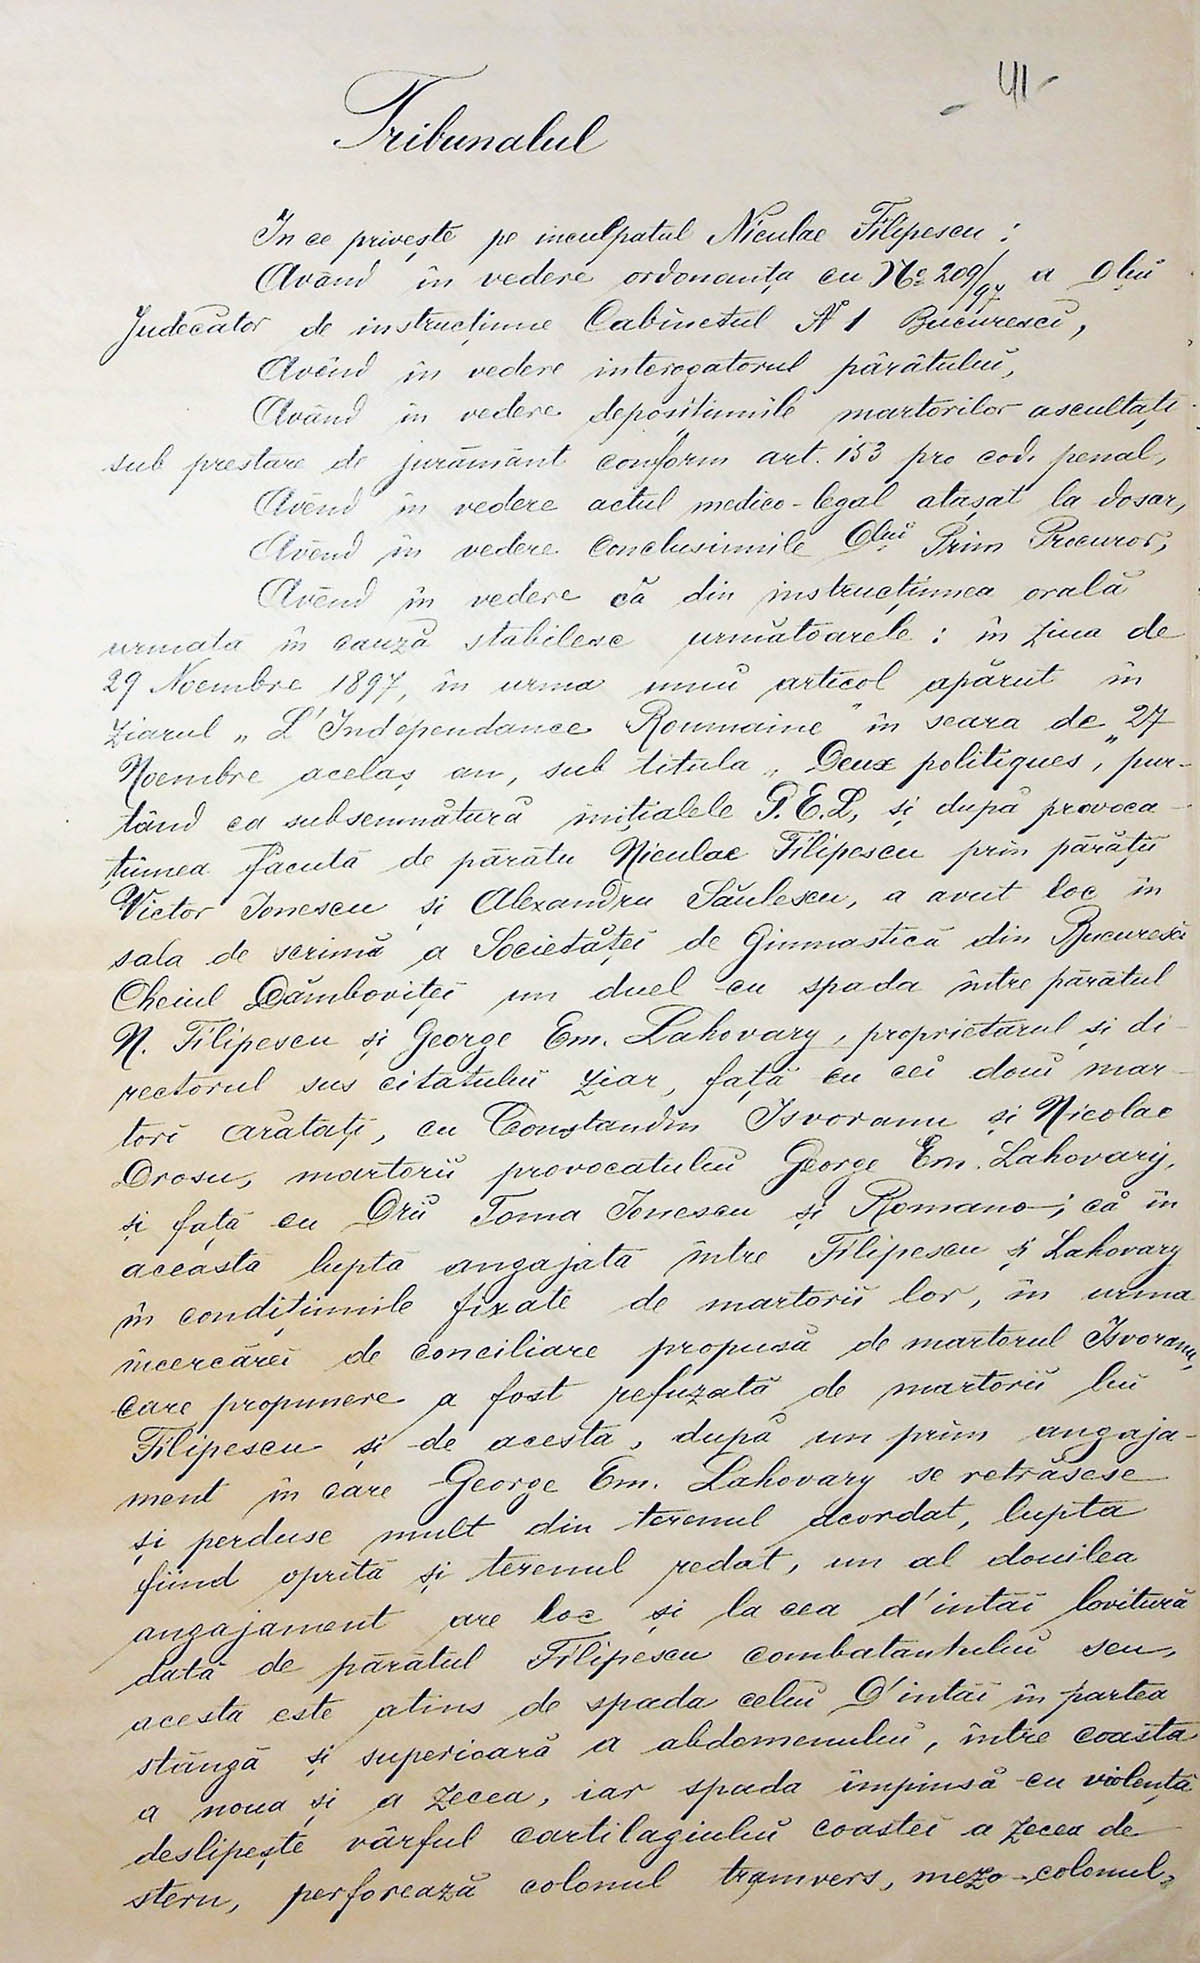 - 41 -
Tribunalul
In ce privește pe inculpatul Niculae Filipescu:
Având în vedere ordonanța cu No 209/97 a Dlui
Judecător de instrucțiune Cabinetul No 1 Bucuresci,
Avênd în vedere interogatorul pârâtului,
Având în vedere deposițiunile martorilor ascultați
sub prestare de jurământ conform art. 153 pro cod. penal,
Avênd în vedere actul medico-legal atașat la dosar,
Avênd în vedere conclusiunile Dlui Prim Procuror,
Avênd în vedere că din instrucțiunea orală
urmata în cauză stabilesc următoarele: în ziua de
29 Noembre 1897, în urma unui articol apărut în
ziarul „L'Independance Roumaine" în seara de 27
Noembre acelaș an, sub titula „Deux politiques", pur-
tând ca subsemnătură inițialele G. E. L, și după provoca-
țiunea făcută de pârâtu Niculae Filipescu prin pârâții
Victor Ionescu și Alexandru Săulescu, a avut loc în
sala de scrimă a Societăței de Gimnastică din Bucuresci
Cheiul Dâmboviței un duel cu spada între pârâtul
N. Filipescu și George Em. Lahovary, proprietarul și di-
rectorul sus citatului ziar, față cu cei doui mar-
tori arătați, cu Constandin Isvoranu și Nicolae
Drosu, martorii provocatului George Em. Lahovary,
și față cu Drii Toma Ionescu și Romano; că în
aceasta luptă angajată între Filipescu și Lahovary
în condițiunile fixate de martorii lor, în urma
încercărei de conciliare propusă de martorul Isvoranu,
care propunere a fost refuzată de martorii lui
Filipescu și de acesta, după un prim angaja-
ment în care George Em. Lahovary se retrăsese
și perduse mult din terenul acordat, lupta
fiind oprită și terenul redat, un al douilea
angajament are loc și la cea d'intâi lovitură
dată de pârâtul Filipescu combatantului seu,
acesta este atins de spada celui D'intâi în partea
stângă și superioară a abdomenului, între coasta
a noua și a zecea, iar spada împinsă cu violență
deslipește vârful cartilagiului coastei a zecea de
stern, perforează colonul transvers, mezo-colonul,